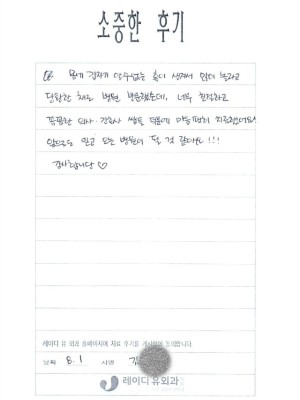 소중한 후기
몸에 갑자기 알수없는 혹이 생겨서 많이 놀라고
당황한 채로 병원 방문했는데, 너무 친절하고
꼼꼼한 의사·간호사 쌤들 덕분에 마음편히 치료했어요!
앞으로도 믿고 오는 병원이 될 것 같아요!!!
감사합니다 ♡
레이디 유 외과 홈페이지에 치료 후기를 게시함에 동의합니다.
날짜 8. 1 서명 김
레이디유외과